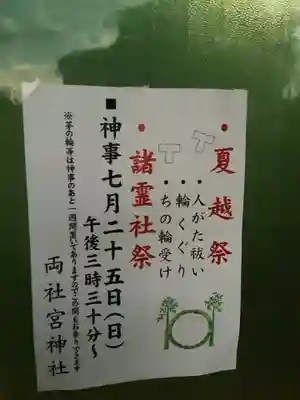 ・夏越祭
・人がた祓い
・輪くぐり
・ちの輪受け
・諸霊社祭
■神事七月二十五日（日）
午後三時三十分～
※茅の輪等は神事のあと一週間置いてありますのでこの間もお参りできます
両社宮神社